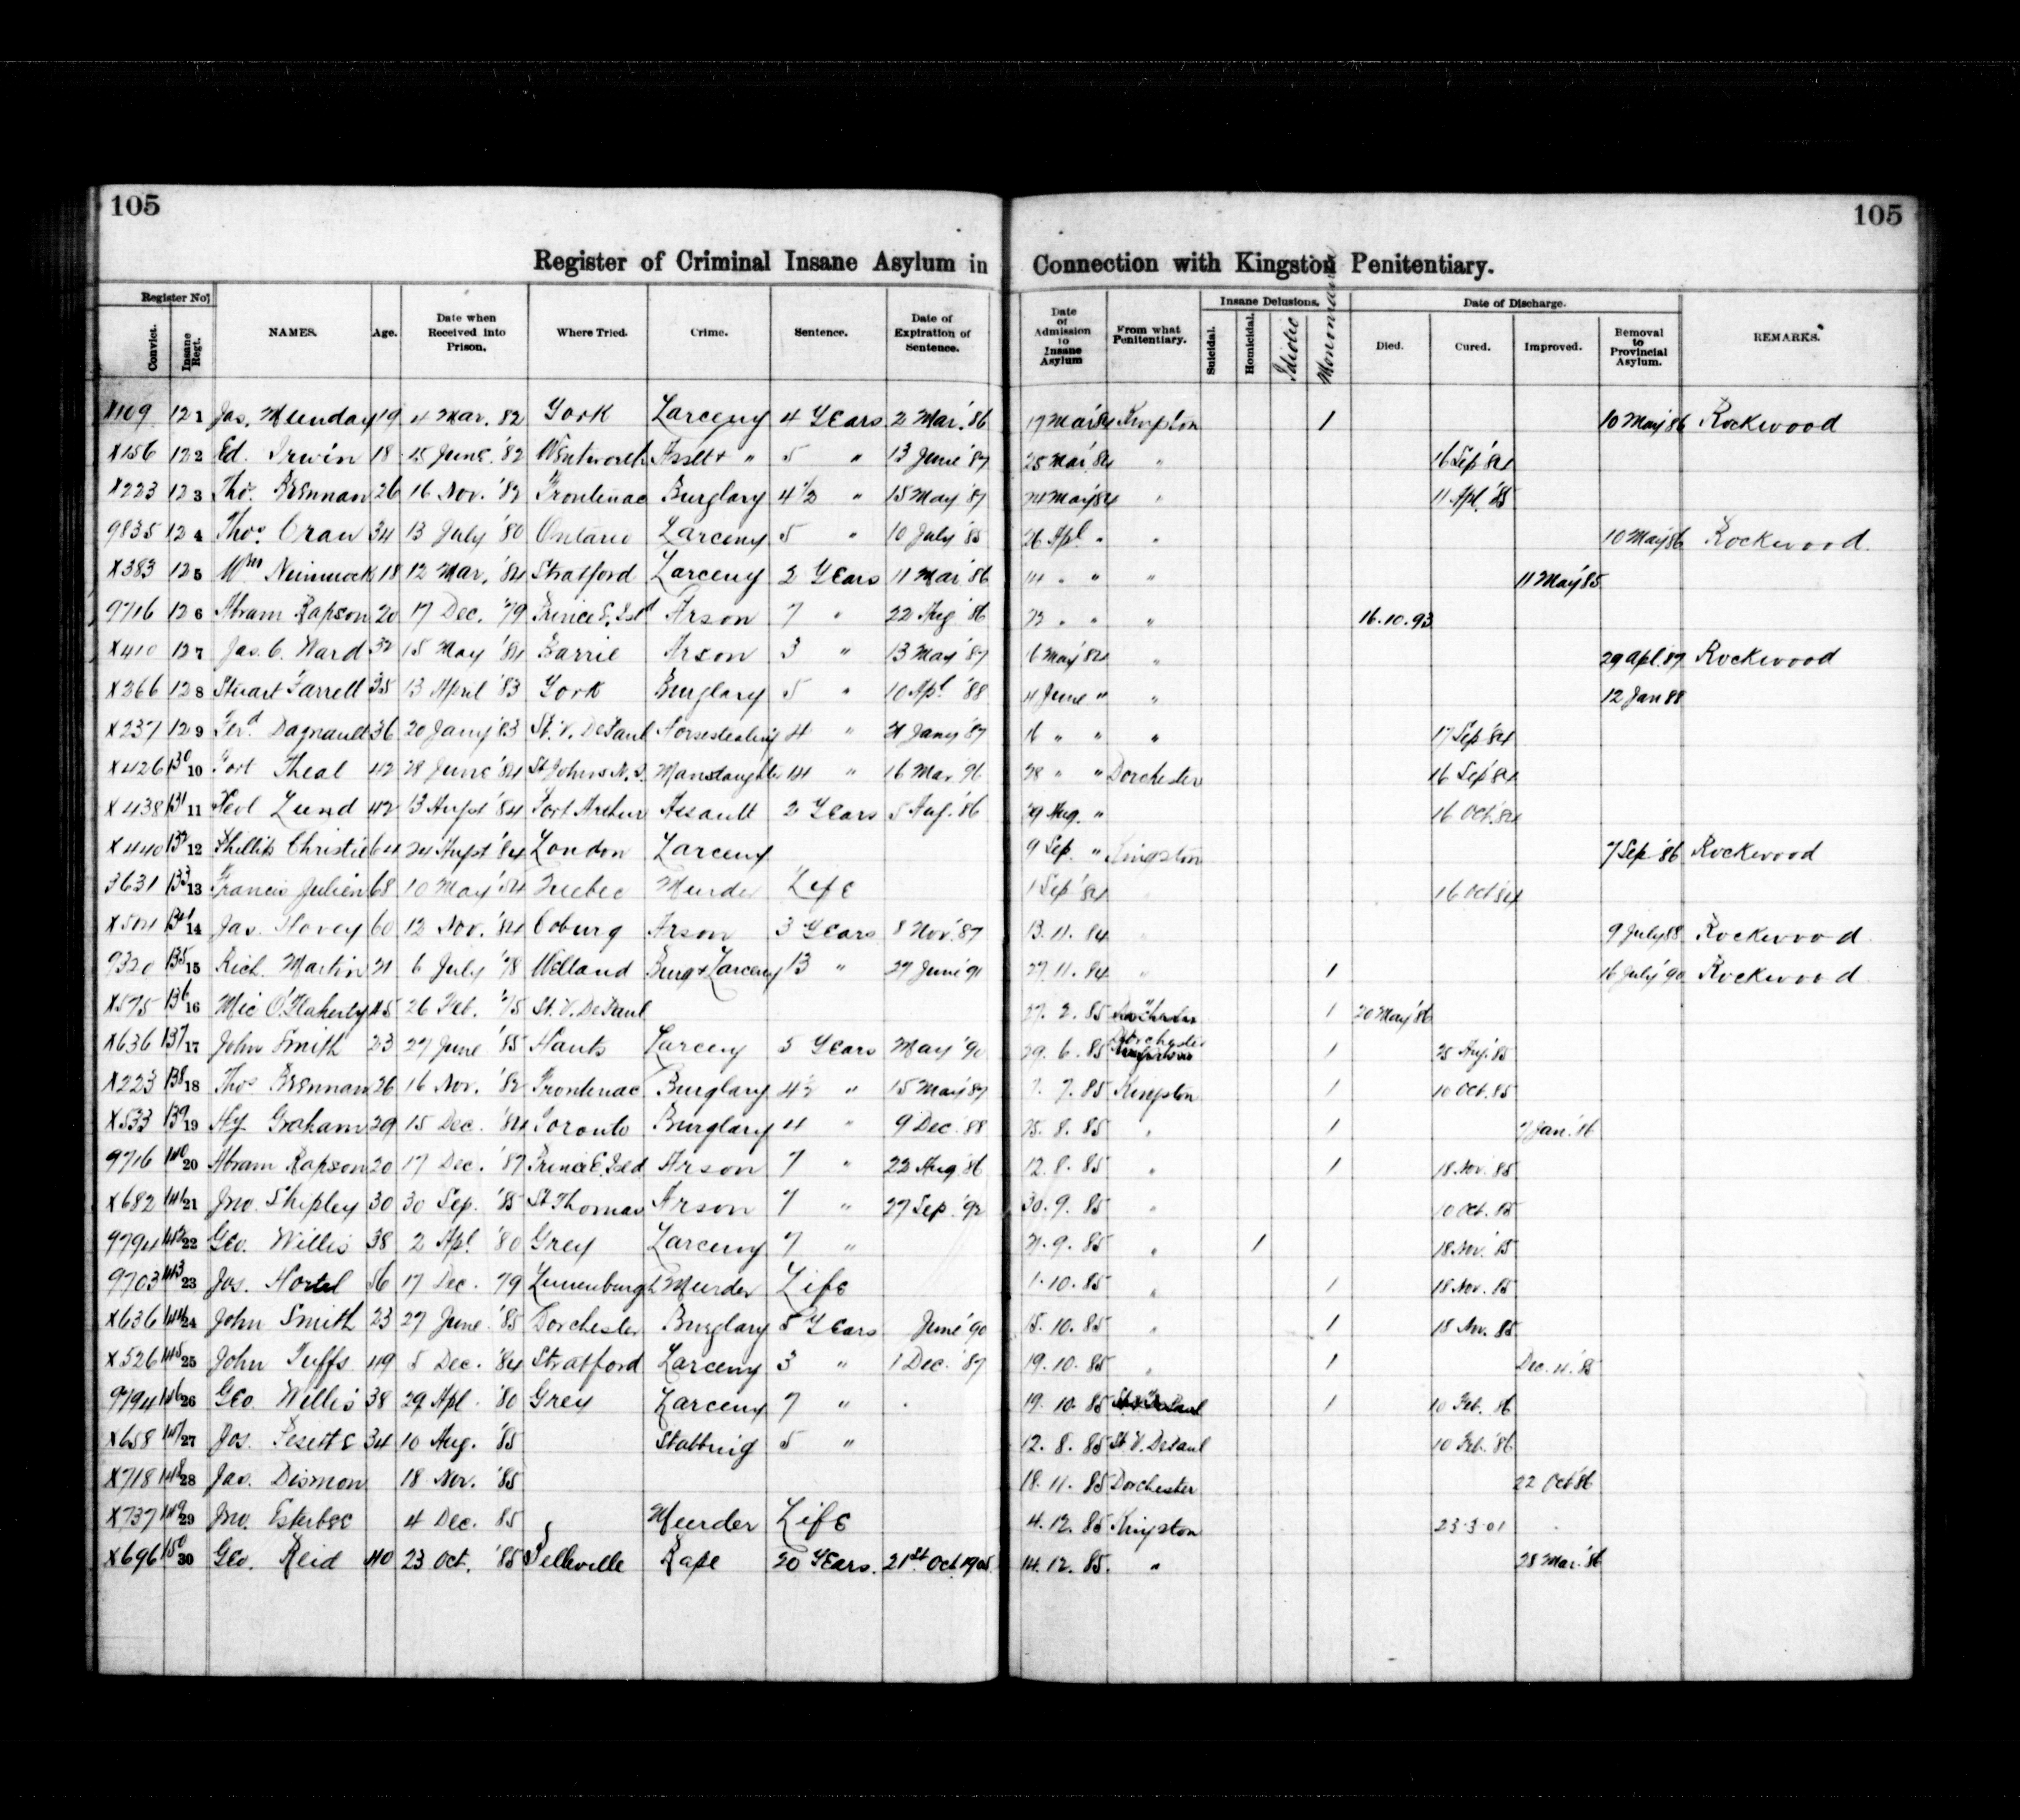 105
105
Register of Criminal Insane Asylum in Connection with Kingston Penitentiary.
Register No.
Convict.
Insane Regt.
NAMES.
Age.
Date when Received into Prison.
Where Tried.
Crime.
Sentence.
Date of Expiration of Sentence.
Date of Admission to Insane Asylum
From what Penitentiary.
Insane Delusions.
Suicidal.
Homicidal.
Idiotic
Monomania
Date of Discharge.
Died.
Cured.
Improved.
Removal to Provincial Asylum.
REMARKS.
X109 121 Jas. Munday 19 4 Mar. 82 York Larceny 4 Years 2 Mar. '86 17 Mar '84 Kingston 1 10 May '86 Rockwood
X156 122 Ed. Irwin 18 15 June '82 Wentworth Asslt + " 5 " 13 June '87 25 Mar. '84 " 16 Sep '84
X223 123 Tho. Brennan 26 16 Nov. '82 Frontenac Burglary 4 1/2 " 15 May '87 24 May '84 " 11 Apl. '85
9835 124 Thos. Oran 34 13 July '80 Ontario Larceny 5 " 10 July '85 26 Apl. " " 10 May 86 Rockwood.
X383 125 Wm 18 12 Mar. '84 Stratford Larceny 2 Years 11 Mar '86 14 " " " 11 May '85
9716 126 Abram Rapson 20 17 Dec. '79 Prince E. Isd Arson 7 " 22 Aug '86 22 " " " 16.10.93
X410 127 Jas. C. Ward 32 15 May '84 Barrie Arson 3 " 13 May '87 16 May '84 " 29 Apl. '87 Rockwood
X366 128 Stuart Farrell 35 13 April '83 York Burglary 5 " 10 Apl. '88 4 June " " 12 Jan 88
X237 129 Ferd. Dagnault 36 20 Jany '83 St. V. DePaul Horsestealing 4 " 21 Jany '87 16 " " " 17 Sep '84
X426 130 10 Fort Theal 42 28 June '84 St Johns N.B. Manslaughter 14 " 16 Mar '96 28 " " Dorchester 16 Sep '84
X438 131 11 Lund 42 13 Augst '84 Port Arthur Assault 2 Years 5 Aug. '86 29 Aug. " 16 Oct. 84
X440 132 12 Phillip Christie 64 24 Augst '84 London Larceny 9 Sep. " Kingston 7 Sep '86 Rockwood
3631 133 13 Francis Julien 68 10 May '54 Quebec Murder Life 1 Sep '84 16 Oct 84
X504 134 14 Jas. Hovey 60 12 Nov. '84 Coburg Arson 3 Years 8 Nov. '87 13.11.84 9 July 88 Rockwood
9320 135 15 Rich. Martin 21 6 July '78 Welland Burg + Larceny 13 " 27 June '91 27.11.84 " 1 16 July '90 Rockwood
X575 136 16 Mic O'Flaherty 45 26 Feb. '75 St. V. DePaul 27.2.85 Dorchester 1 20 May '86
X636 137 17 John Smith 23 27 June '85 Hants Larceny 5 Years May '90 29.6.85 Dorchester 1 25 Aug. '85
X223 138 18 Thos Brennan 26 16 Nov. '82 Frontenac Burglary 4 1/2 " 15 May '87 7.7.85 Kingston 1 10 Oct. 85
X533 139 19 Hy. Graham 29 15 Dec. '84 Toronto Burglary 4 " 9 Dec. '88 25.8.85 " 1 7 Jan. '86
9716 140 20 Abram Rapson 20 17 Dec. '87 Prince E. Isld Arson 7 " 22 Aug. '86 12.8.85 " 1 18 Nov. '85
X682 141 21 Jno. Shipley 30 30 Sep. '85 St Thomas Arson 7 " 27 Sep. '92 30.9.85 " 10 Oct. 85
9794 142 22 Geo. Willis 38 2 Apl. '80 Grey Larceny 7 " 21.9.85 " 1 18 Nov. '85
9703 143 23 Jos. Hortel 56 17 Dec. 79 Lunenburgh Murder Life 1.10.85 " 1 18 Nov. 85
X636 144 24 John Smith 23 27 June '85 Dorchester Burglary 5 Years June '90 15.10.85 " 1 18 Nov. 85
X526 145 25 John Tuffs 49 5 Dec. '84 Stratford Larceny 3 " 1 Dec. '87 19.10.85 " 1 Dec. 4. '85
9794 146 26 Geo. Willis 38 29 Apl. '80 Grey Larceny 7 " 19.10.85 1 10 Feb. 86
X658 147 27 Jos. 34 10 Aug. '85 Stabbing 5 " 12.8.85 St. V. DePaul 10 Feb. '86
X718 148 28 Jas. Dismon 18 Nov. '85 18.11.85 Dorchester 22 Oct '86
X737 149 29 Jno. 4 Dec. 85 Murder Life 4.12.85 Kingston 23-3-01
X696 150 30 Geo. Reid 40 23 Oct. '85 Belleville Rape 20 Years. 21st Oct. 1905 14.12.85. " 28 Mar. '86